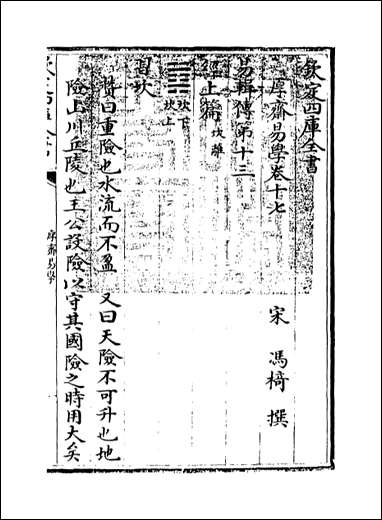 欽定四庫全書
厚齋易學卷十七
宋 馮椅 撰
易輯傳第十三
經上篇 坎離
坎下
坎上
習坎
贊曰重險也水流而不盈 又曰天險不可升也地
險山川丘陵也王公設險以守其國險之時用大矣
厚齋易學